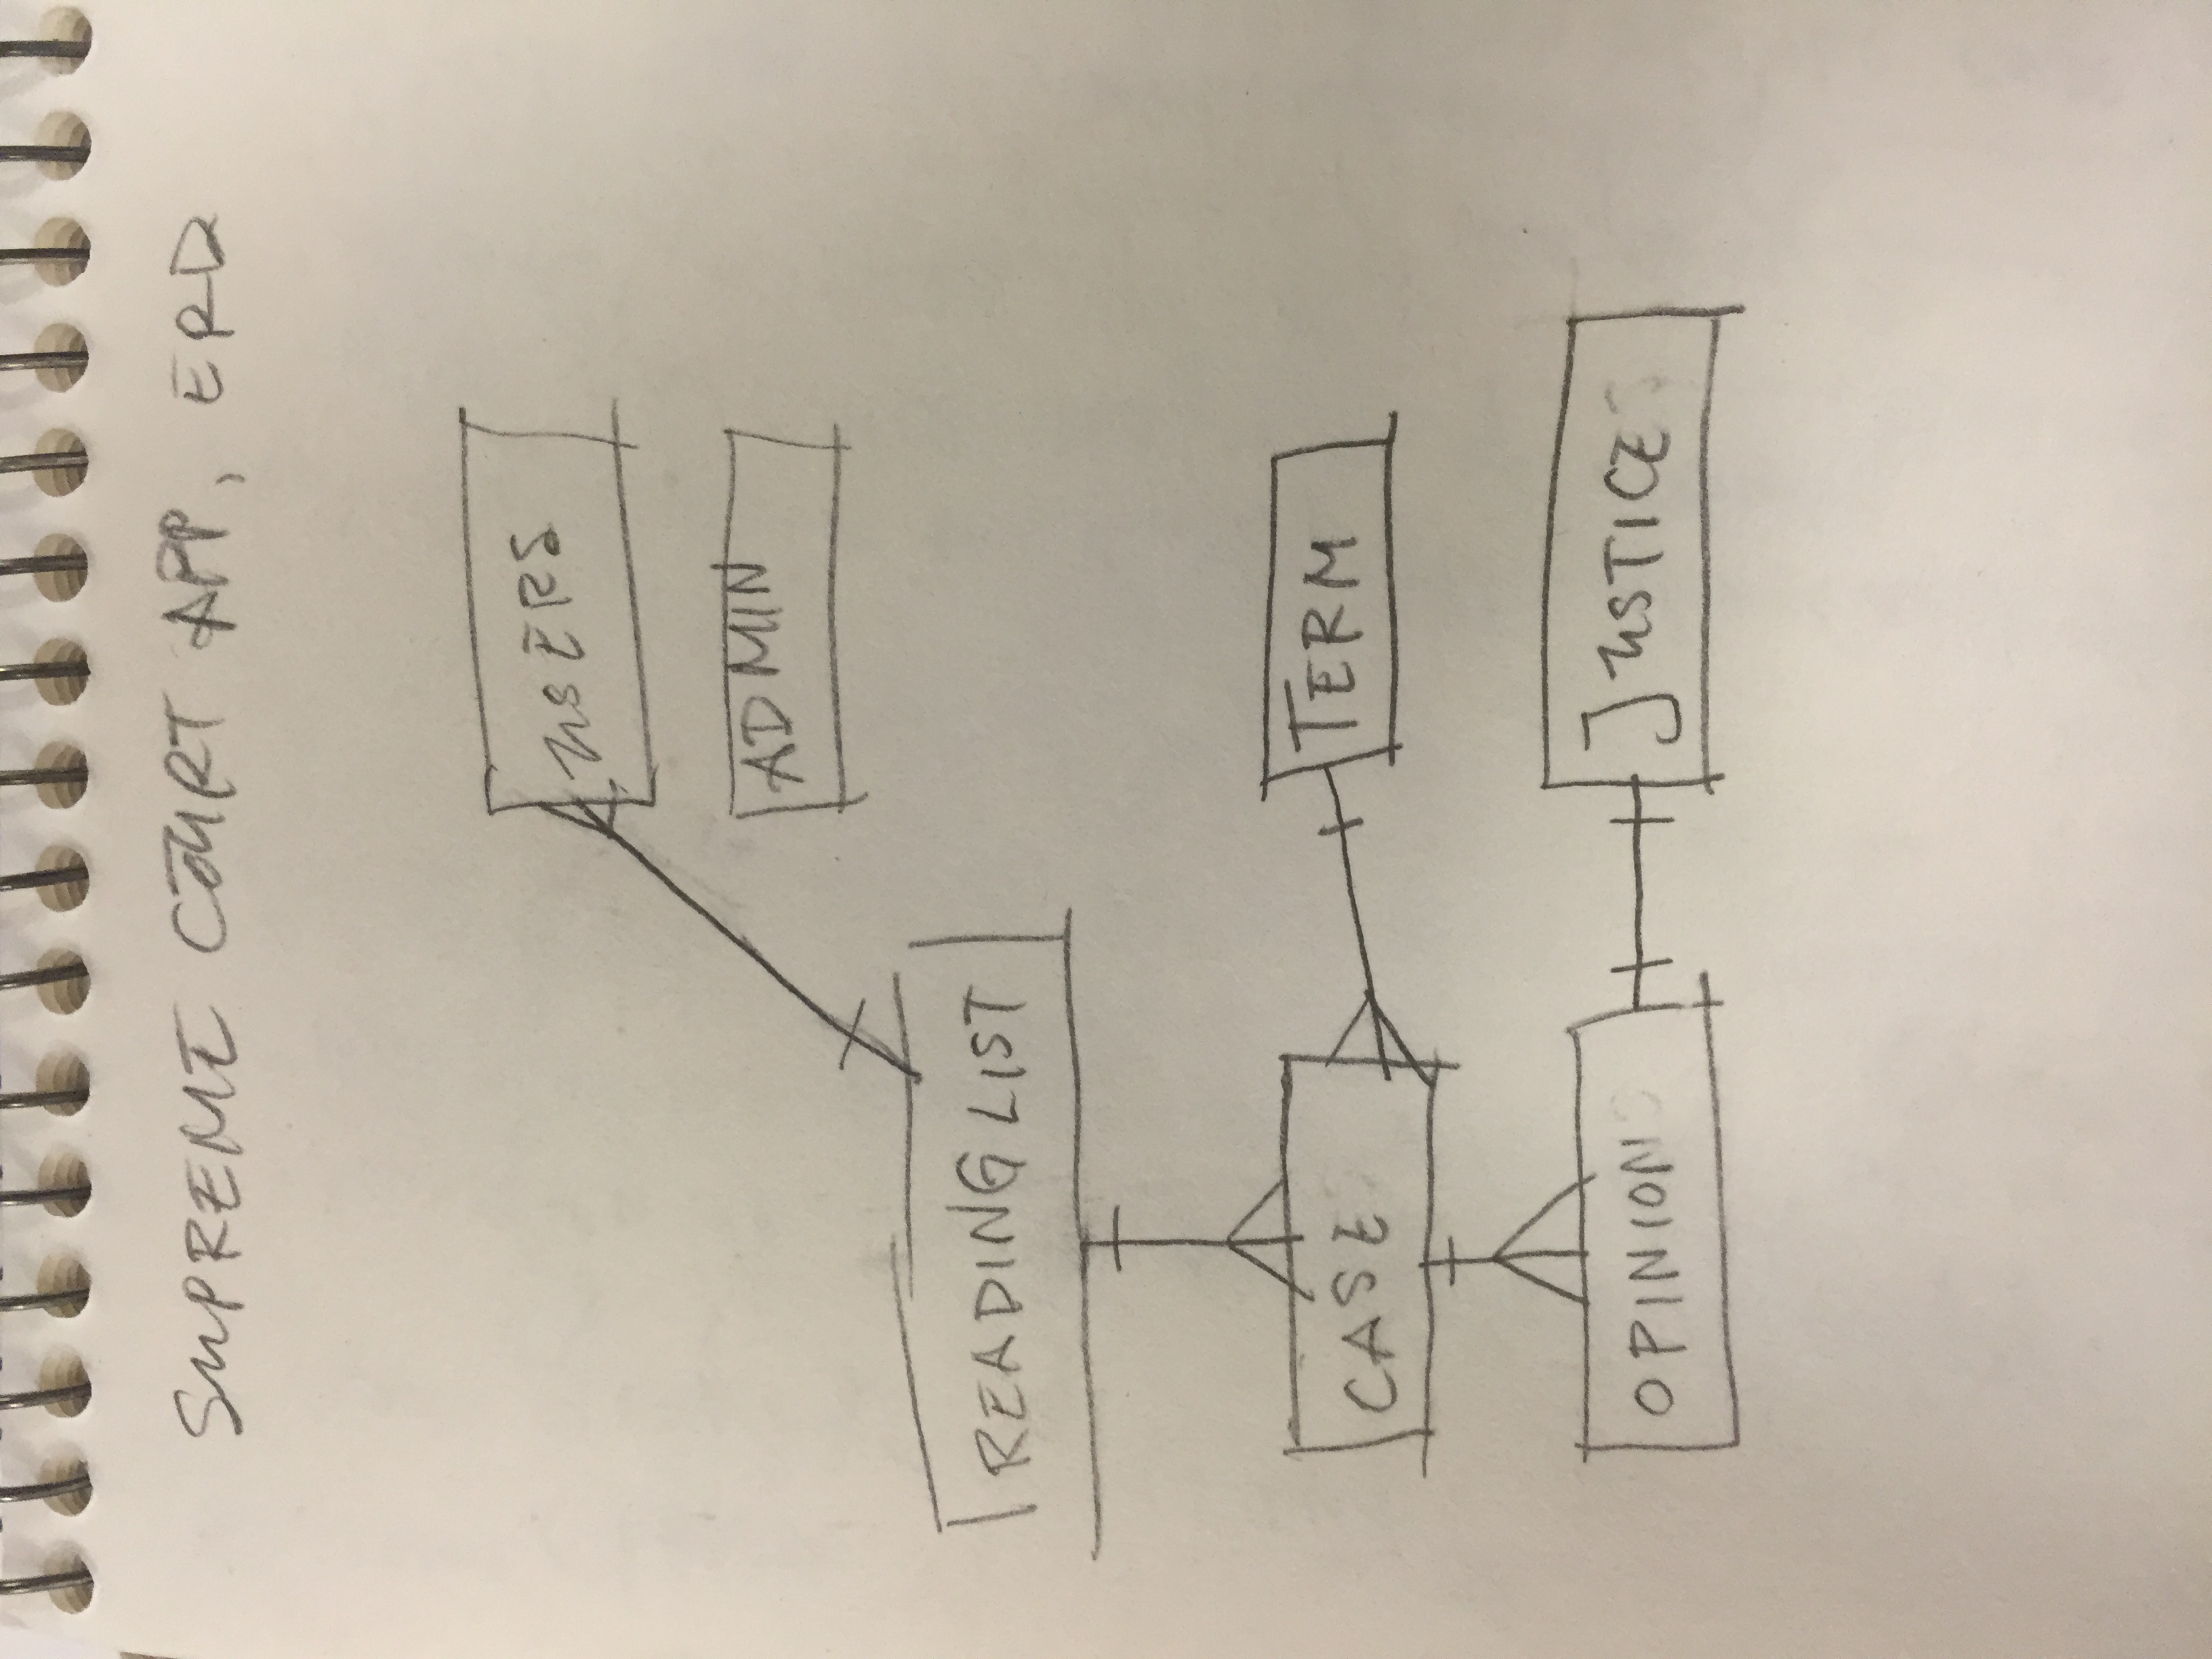 SUPREME COURT APP, ERD
USERS
ADMIN
READING LIST
CASE
TERM
OPINION
JUSTICE